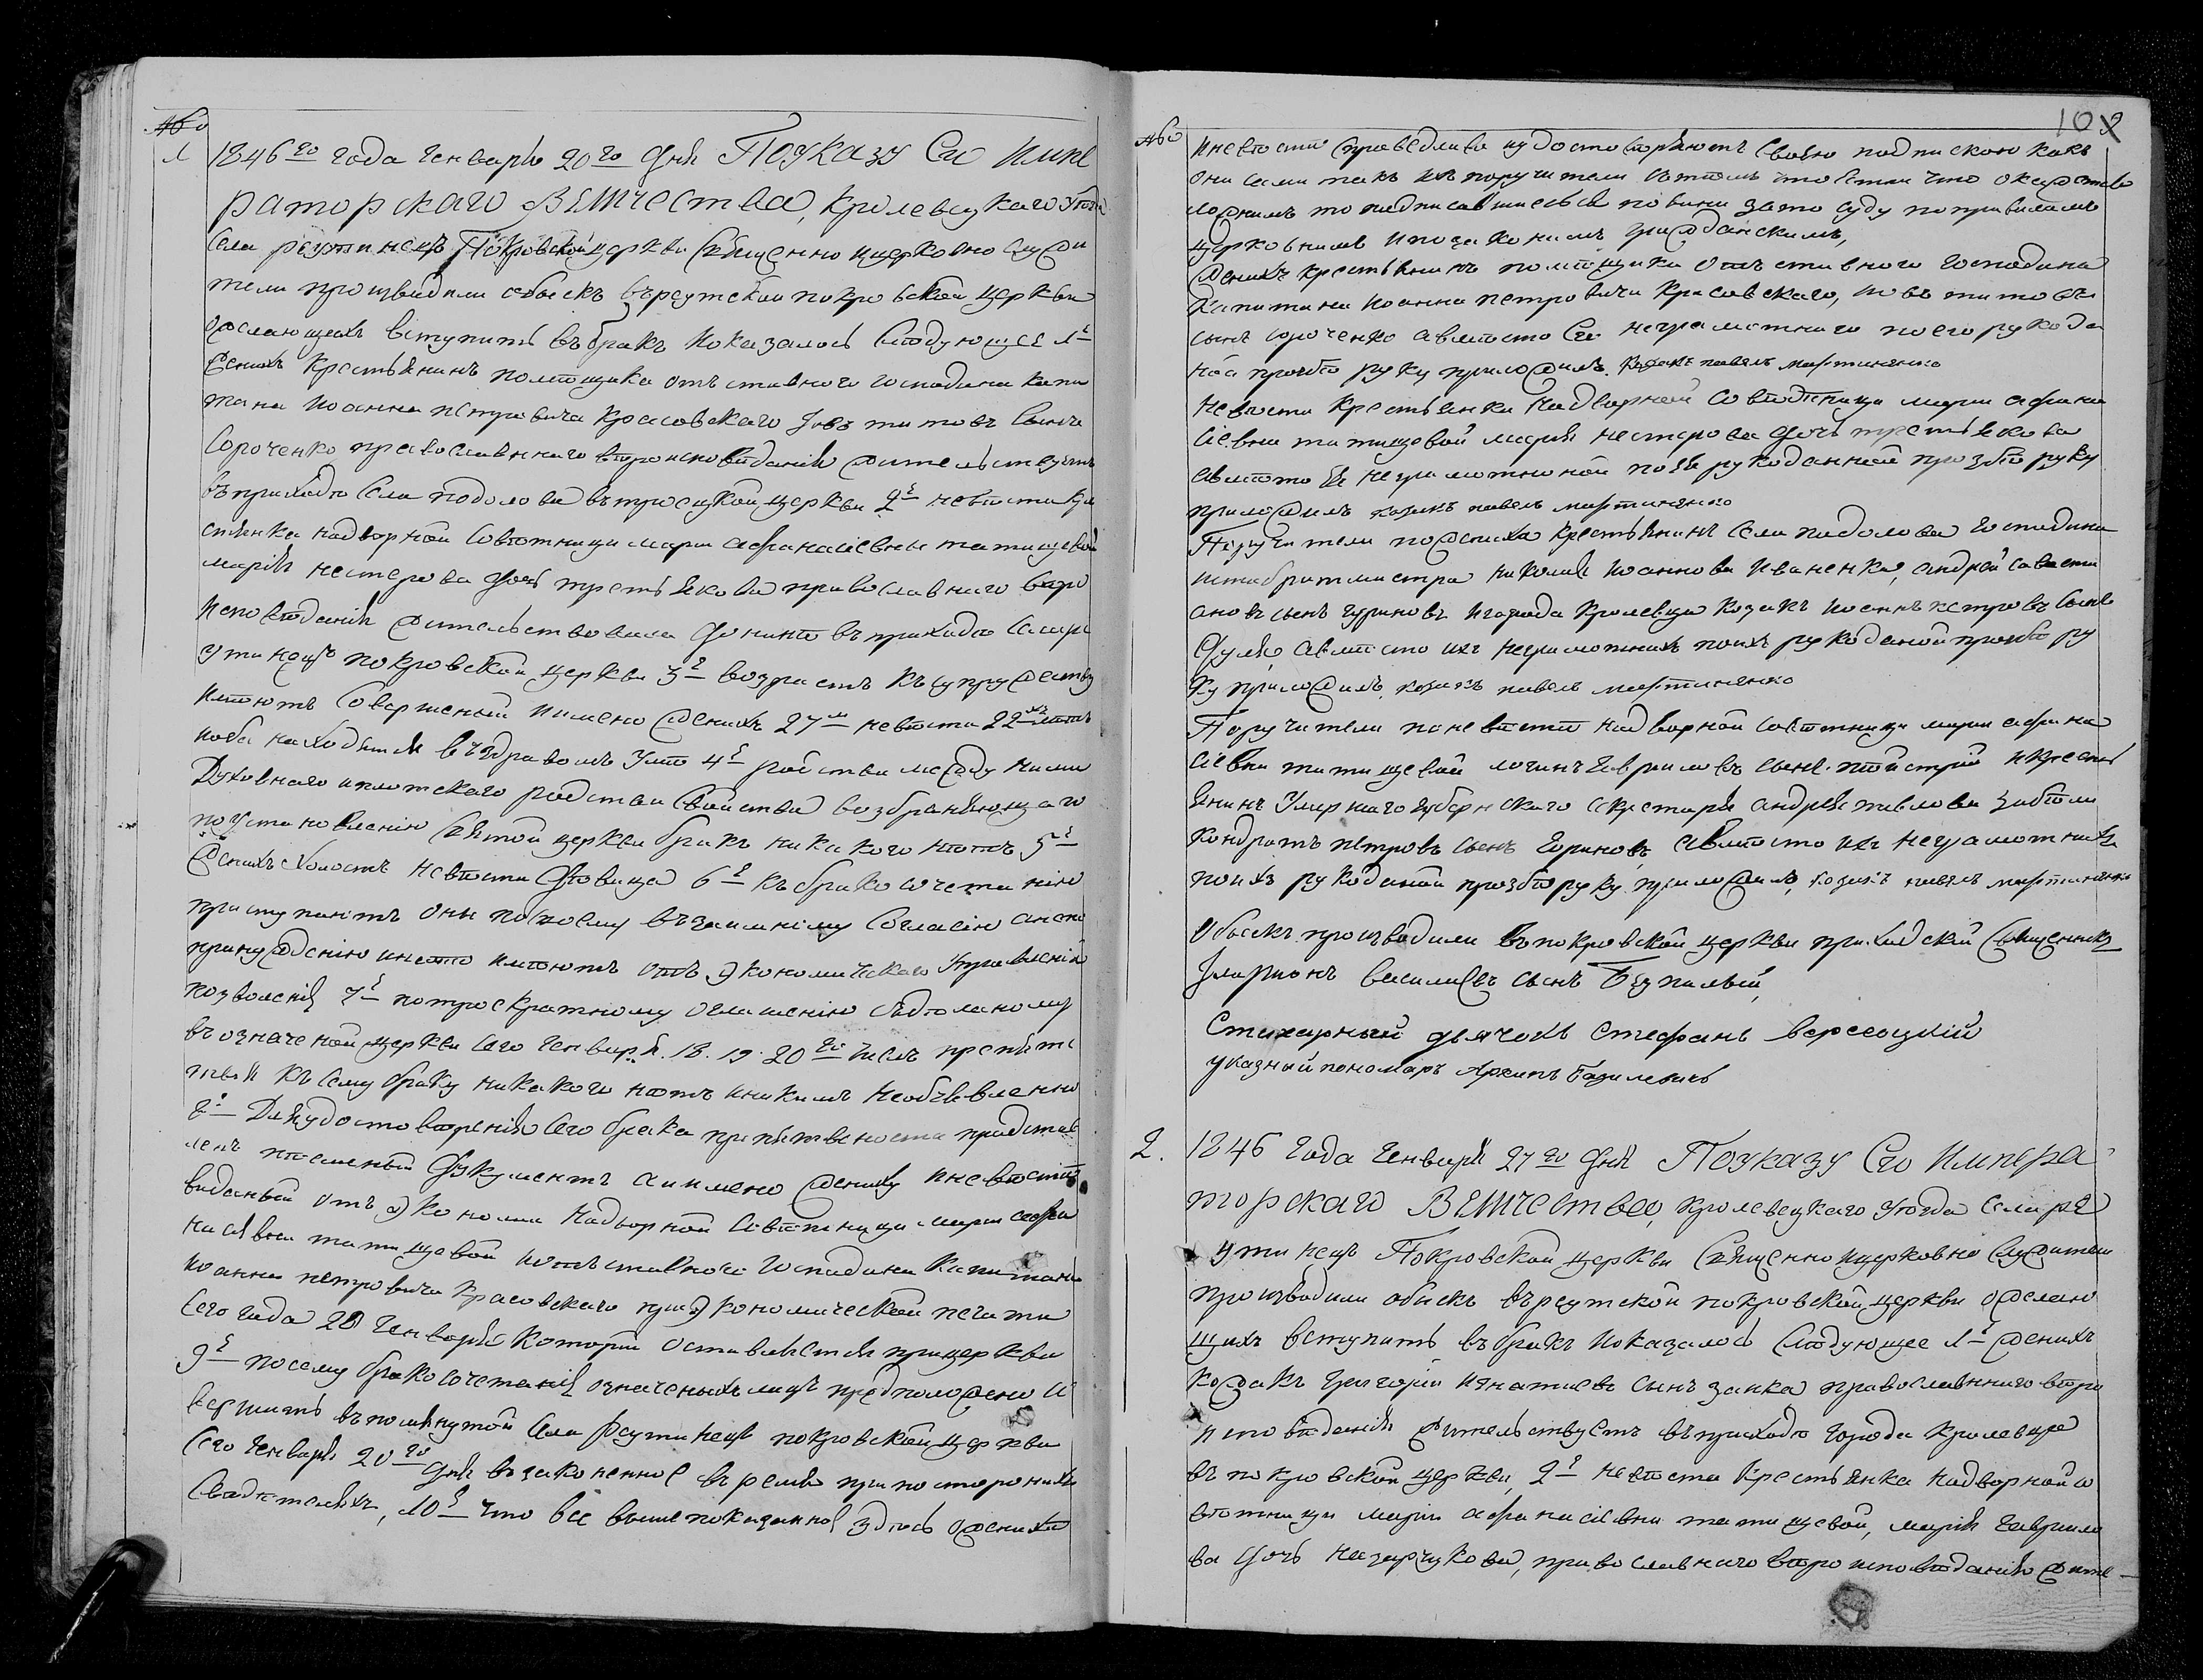 №
1
1846го года Генваря 20го дня По указу Его Импе
раторскаго Величества, кролевецкаго уезда
села реутинецъ Покровской церкви Священно и церковно служи
тели производили обыскъ въ реутской покровской церкви
о желающихъ вступить въ бракъ и оказалось следующее 1е
Женихъ крестьянинъ помѣщика отъставного господина капи
тана Иоанна петровича Красовскаго Іовъ титовъ сынъ
Сороченко православнаго вѣроисповѣданія жительствуетъ
въ приходѣ села подолова въ троецкой церкви 2е невѣста кре
стянка надворной совѣтници марии афанасіевны татищевой
марія нестерова дочь третьякова православнаго вѣро
исповѣданія жительствовала до нинѣ въ приходѣ села ре
утинецъ покровской церкви 3е возрастъ къ супружеству
имѣютъ совершеный и имено женихъ 27м невѣста 22 лѣтъ
и оба находятся въ здравомъ умѣ 4е родства между ними
Духовнаго и плотскаго родства свойства возбраняющаго
по установленію святой церкви бракъ никакого нѣтъ 5е
Женихъ холостъ невѣста дѣвица 6е къ бракосочетанію
приступаютъ они по своему взаимному согласію а не по
принужденію и на то имѣютъ отъ экономическаго управленія
позволеній 7е по троекратному оглашенію сдѣланому
въ означеной церкви сего Генваря 18. 19. 20го числъ препят
ствія къ сему браку никакого нѣтъ и никимъ необъявленно
8е Для удостоверенія сего брака препятвеноста представ
ленъ писменый документъ а имено жениху и невѣстѣ
виданый отъ экономии надворной совѣтници марии афа
насиевни татищевой и отъставного господина капитана
иоанна петровича Красовскаго при экономической печати
сего года 20 Генваря который оставляется при церкви
9е по сему бракосочетаній означеныхъ лицъ предположено со
вершить въ помянутой села реутинецъ покровской церкви
сего Генваря 20го дня въ законенное время при постороннихъ
свидѣтеляхъ, 10е что все выше показанное здѣсь о женихѣ
102
№
и невѣстѣ справедливо и удостоверяютъ своею подпискою какъ
они сами такъ и поручители съ тѣмъ что естли что окажется
ложнимъ то подписавшиеся повини за то суду по правиламъ
церковнимъ и по законамъ гражданскимъ,
Женихъ крестьянинъ помѣщика отъставного господина
капитана иоанна петровича Красовскаго, иовъ титовъ
сынъ сороченко а вмѣсто его неграмотнаго по его рукода
ной прозбѣ руку приложилъ козакъ павелъ мартиненко
Невѣста крестьянка надворной совѣтници марии афана
сіевни татищевой мария нестерова дочь третьякова
а вмѣсто ея неграмотноной по ея рукоданной прозбѣ руку
приложилъ козакъ павелъ мартиненко
Поручители по женихѣ крестьянинъ села подолова господина
штабритмистра николая иоаннова иваненка, андрей савасти
ановъ сынъ чуриновъ и города кролевца козакъ иоаннъ петровъ сынъ
Дуля, а вмѣсто ихъ неграмотнихъ по ихъ рукоданой прозбѣ ру
ку приложилъ козакъ павелъ мартиненко
Поручители по невѣстѣ надворной совѣтници марии афана
сіевни татищевой логинъ Гавриловъ сынъ пойстрой и крест
янинъ умершаго губернскаго секретаря андрея павлова забѣли
кондратъ петровъ сынъ гориновъ, а вмѣсто ихъ неграмотнихъ
по ихъ рукоданой прозбѣ руку приложилъ, козакъ павелъ мартиненко
Обыскъ производили въ покровской церкви приходский священникъ
Іларионъ василиевъ сынъ Безпалый,
Стихарный дьячокъ Стефанъ версоцкій
указный пономаръ Архипъ Базилевичъ
2. 1846 года Генваря 27го дня По указу Его Импера
торскаго Величества, кролевецкаго уезда села ре
утинецъ Покровской церкви Священно и церковно служители
производили обыскъ въ реутской покровской церкви о желаю
щихъ вступить въ бракъ и оказалось следующее 1е Женихъ
козакъ григорий игнатиевъ сынъ заика православнаго вѣро
исповѣданія жительствуетъ въ приходѣ города кролевца
въ покровской церкви, 2е невѣста крестьянка надворной со
вѣтници марии афанасіевни татищевой, марія Гаврило
ва дочь назарчукова, православнаго вѣроисповѣданія жите